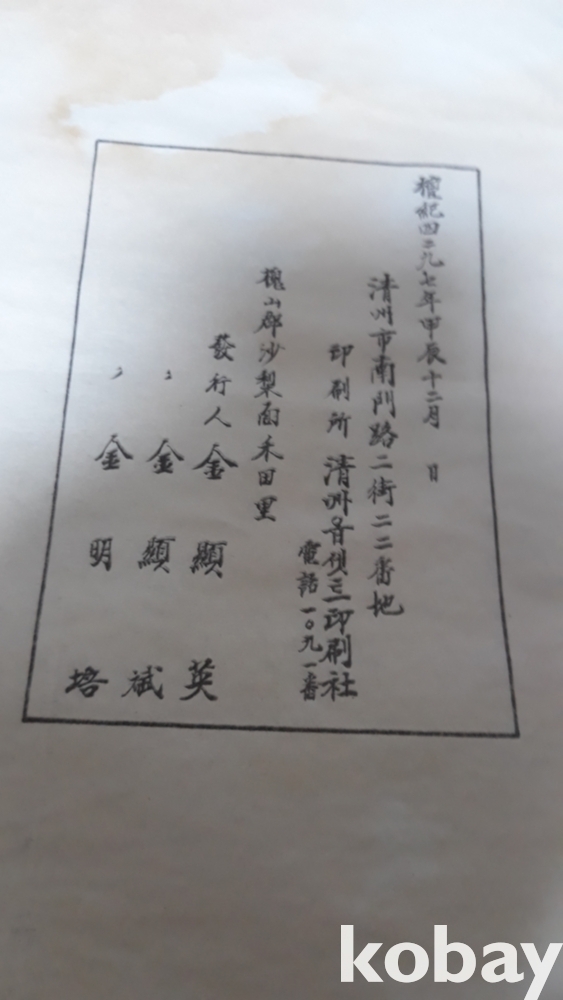 檀紀四二九七年甲辰十二月　日
清州市南門路二街二二番地
印刷所 清州 印刷社
電話 一〇九一番
槐山郡沙梨面禾田里
發行人 金顯英
〃 金顯斌
〃 金明培
kobay